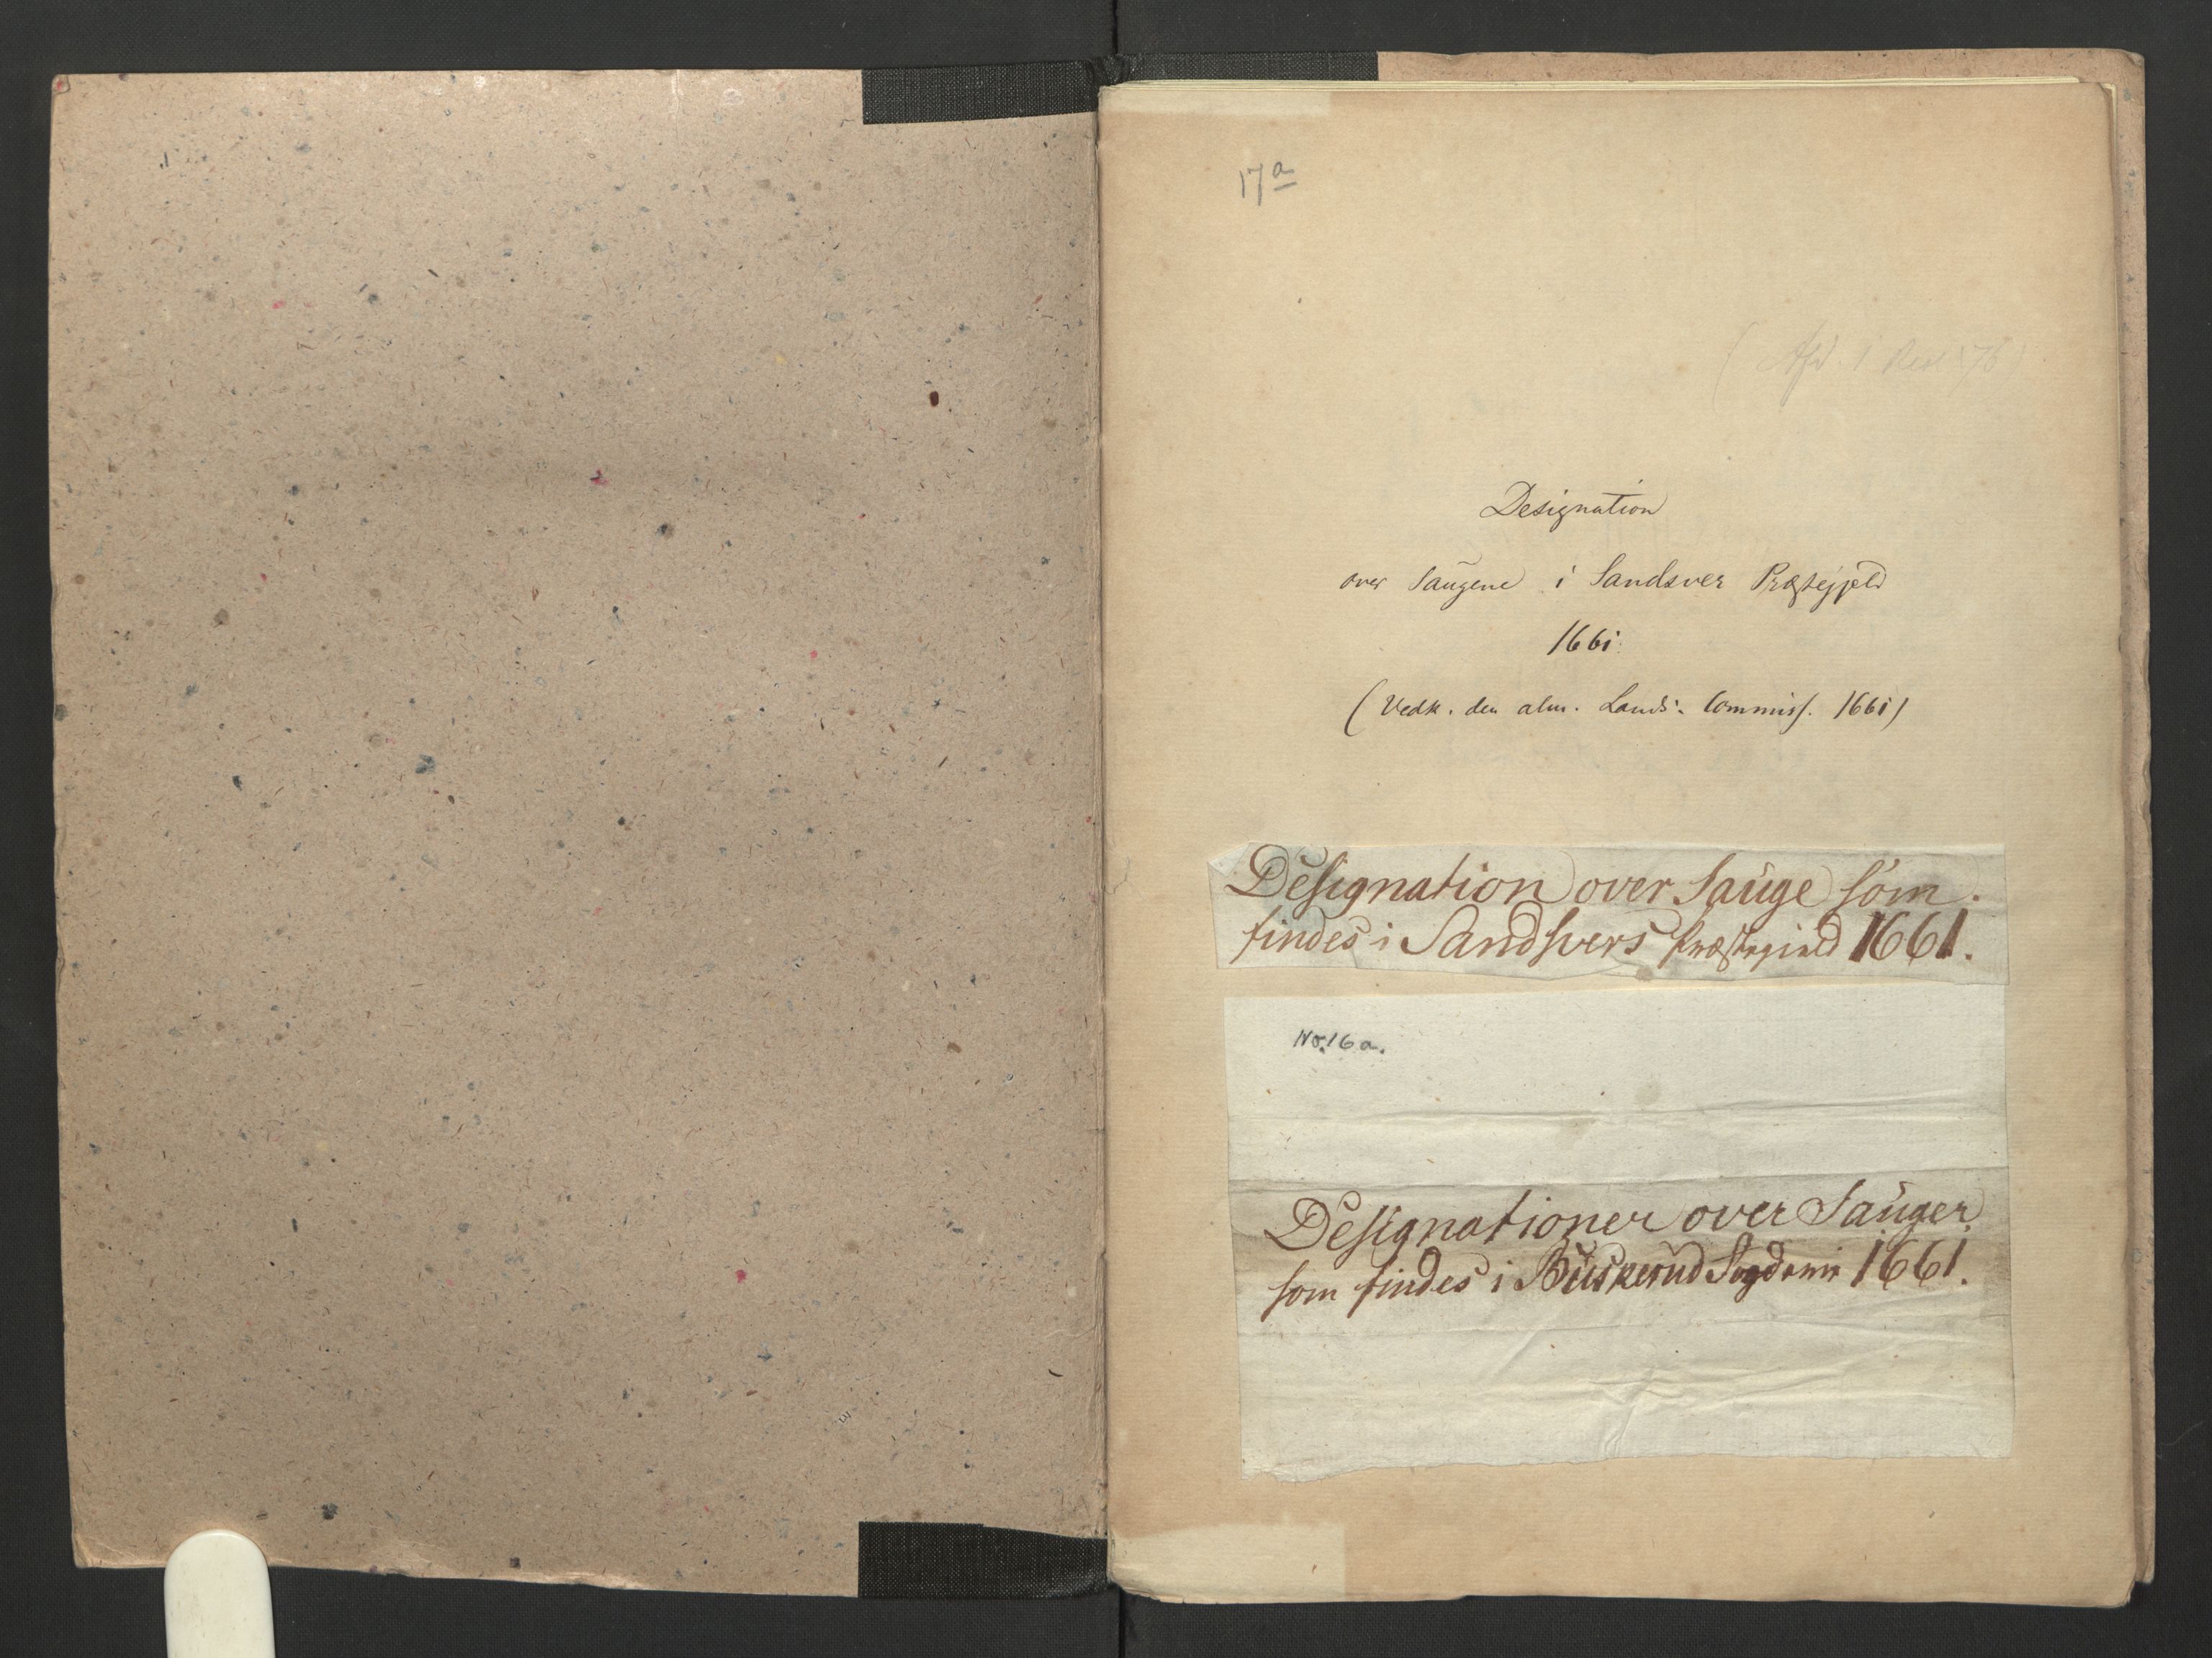 17 a
Designation
over Saugene i Sandsver Præstegjeld
1661.
(Vedk. den alm. Lands-Commiss. 1661)
Designation over Sauge som
findes i Sandsvers Præstegield 1661.
No. 16 a.
Designationer over Sauger
som findes i Buskerud Fogderie 1661.